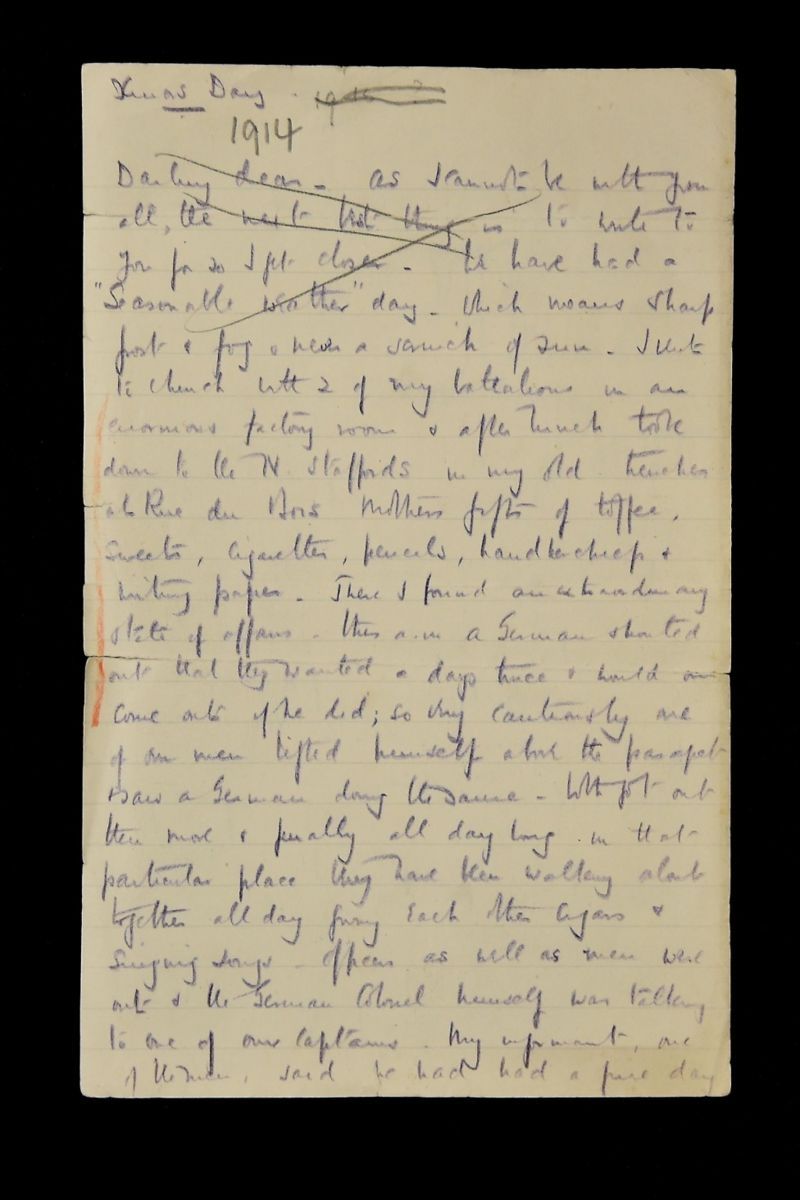 Xmas Day.
1914
Darling dear - as I cannot be with you
all, the next best thing is to write to
you for so I get closer. We have had a
"Seasonable weather" day - which means sharp
frost & fog & never a scrich of sun. I went
to church with 2 of my battalions in an
enormous factory room & after lunch took
down to the N. Staffords in my old trenches
at Rue du Bois Mother's gifts of toffee,
sweets, cigarettes, pencils, handkerchiefs &
writing paper. There I found an extraordinary
state of affairs - this a.m a German shouted
out that they wanted a days truce & would
come out if he did; so very cautiously one
of our men lifted himself above the parapet
& saw a German doing the same. Both got out
then more & finally all day long in that
particular place they have been walking about
together all day giving each other cigars &
singing songs. Officers as well as men were
out & the German Colonel himself was talking
to one of our Captains. My informant, one
of the men, said he had had a fine day